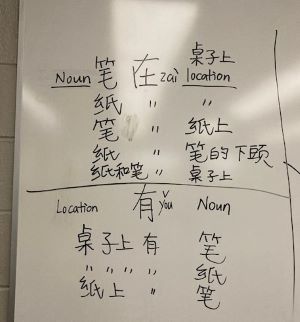 桌子上
Noun 笔 在 zai location
纸 〃 〃
笔 〃 纸上
纸 〃 笔的下头
纸和笔 〃 桌子上
Location 有 yǒu Noun
桌子上 有 笔
〃 〃 〃 〃 纸
纸上 〃 笔